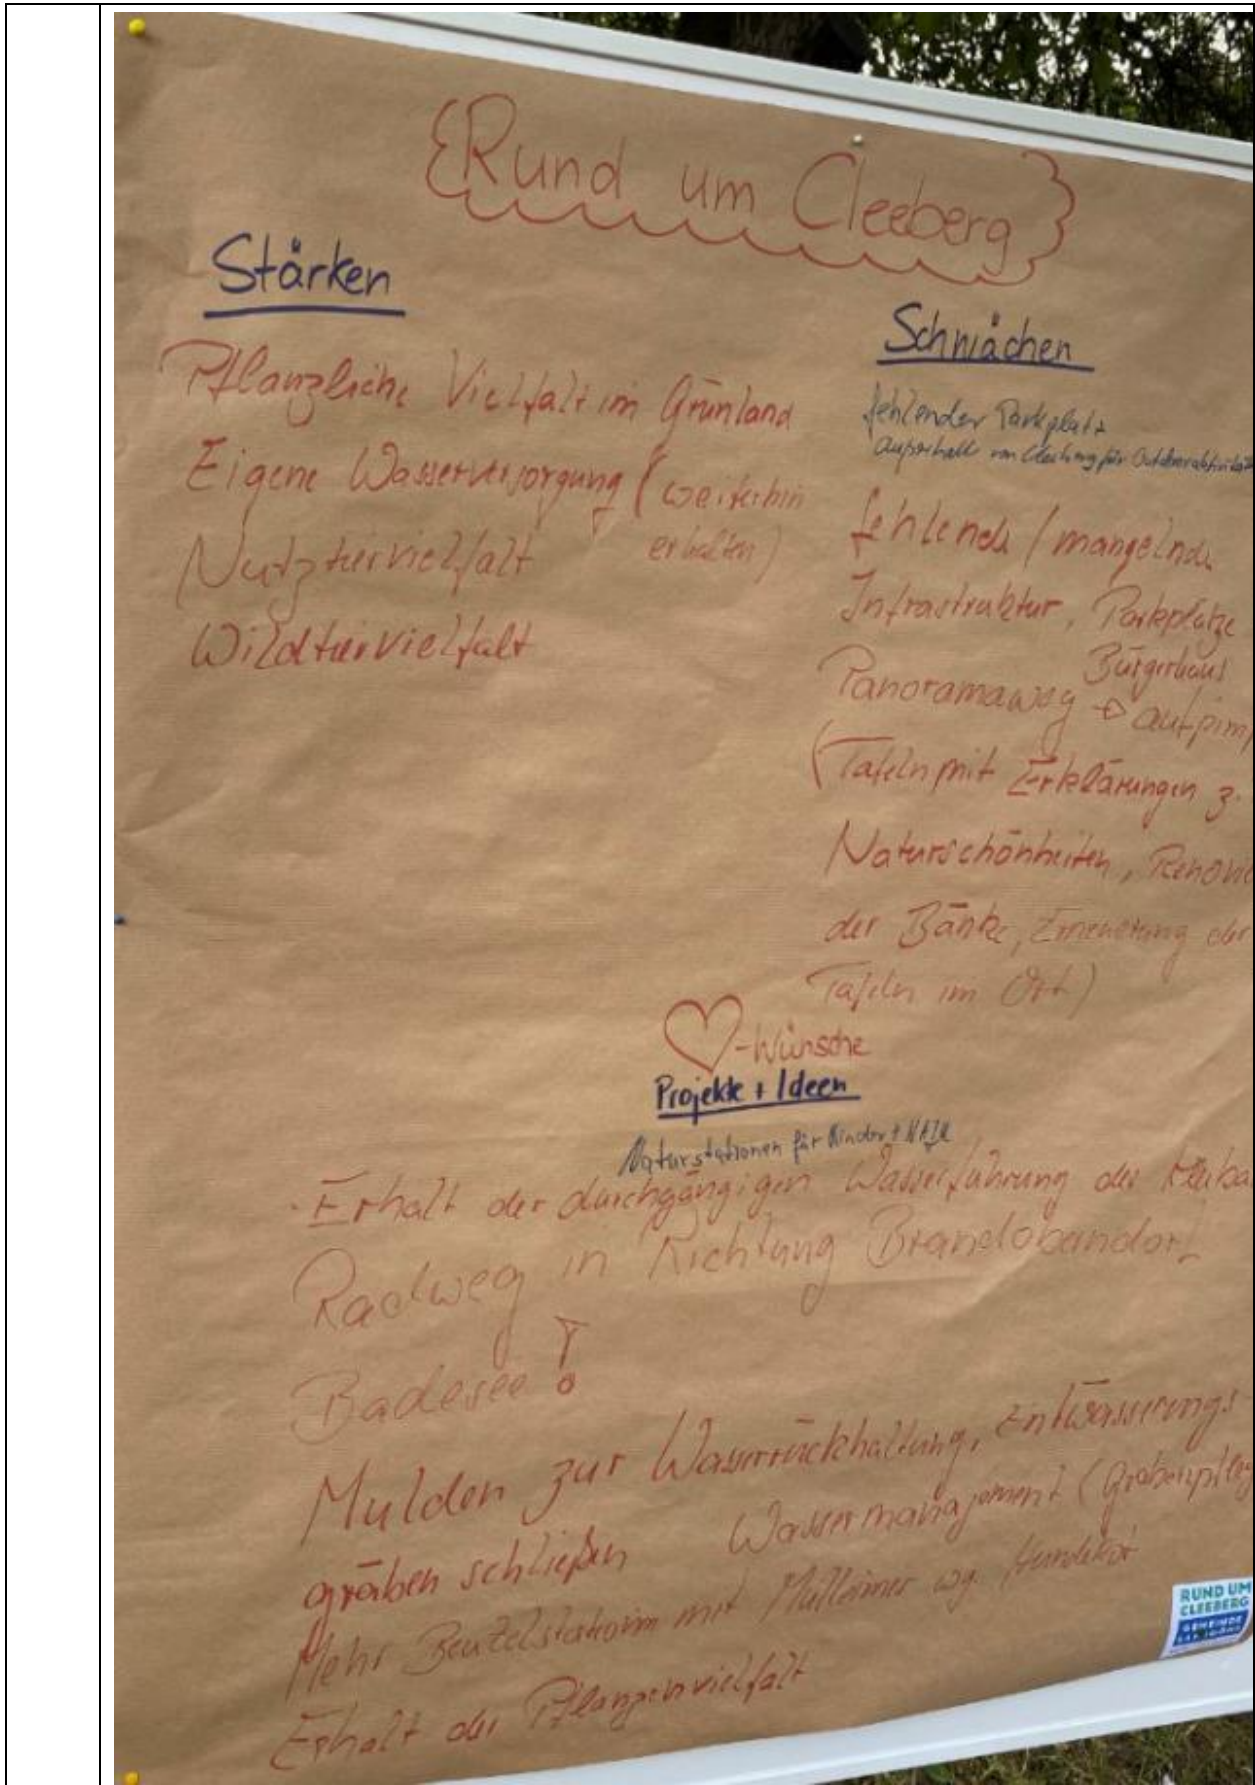 Rund um Cleeberg
Stärken
Pflanzliche Vielfalt im Grünland
Eigene Wasserversorgung (weiterhin
erhalten)
Nutztiervielfalt
Wildtiervielfalt
Schwächen
fehlender Parkplatz
außerhalb von Cleeberg für
fehlende / mangelnde
Infrastruktur, Parkplätze
Bürgerhaus
Panoramaweg → aufpim
(Tafeln mit Erklärungen z.
Naturschönheiten, Renovie
der Bänke, Erneuerung der
Tafeln im Ort)
♡-Wünsche
Projekte + Ideen
Naturstationen für Kinder +
· Erhalt der durchgängigen Wasserführung des
Radweg in Richtung Brandoberndorf
Badesee!
Mulden zur Wasserrückhaltung, Entwässerungs-
gräben schließen
Wassermanagement (Grabenpfleg
Mehr Beutelstationen mit Mülleimer wg. Hundekot
Erhalt der Pflanzenvielfalt
RUND UM
CLEEBERG
GEMEINDE